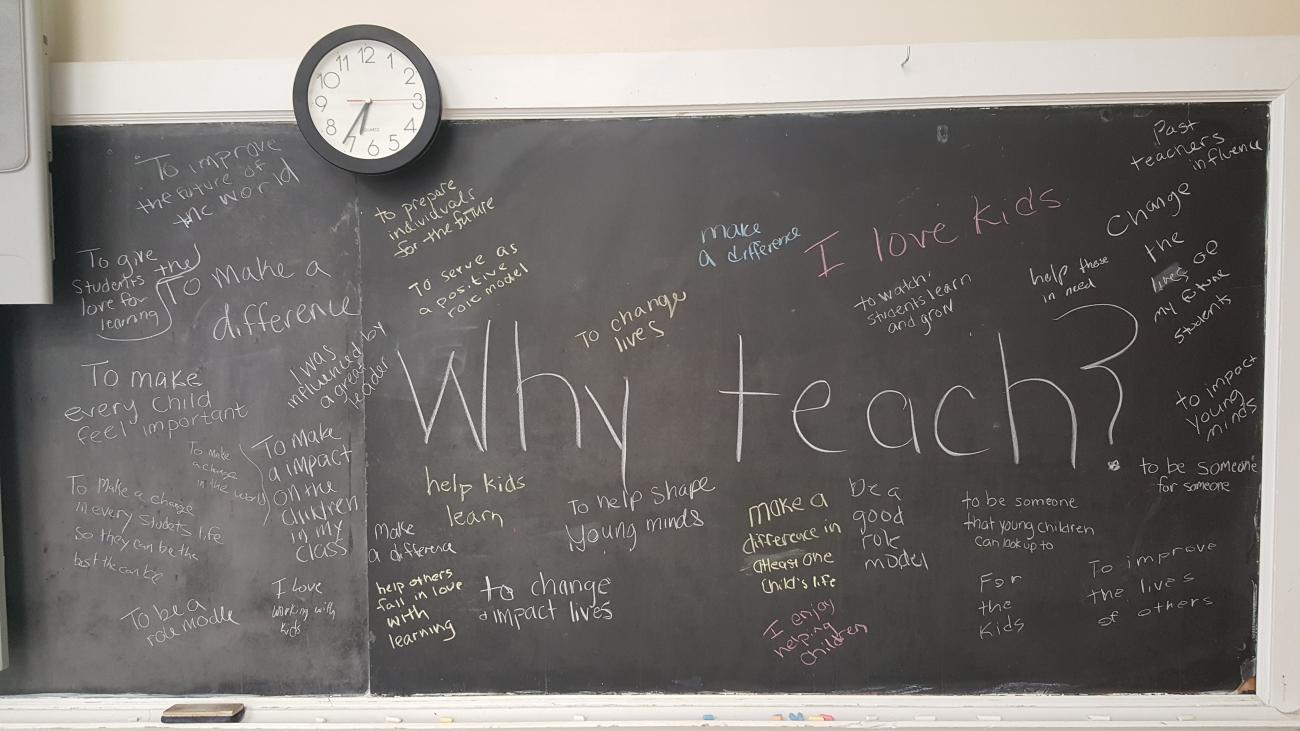 12
1
2
3
4
5
6
7
8
9
10
11
QUARTZ
To improve
the future of
the world
To give
students the
love for
learning
To make a
difference
To make
every child
feel important
I was
influenced by
a great
leader
To make
a change
in the world
To Make
a impact
on the
children
in my
class
To Make a change
in every students life
so they can be the
best the can be
To be a
role modle
I Love
working with
kids
to prepare
individuals
for the future
To serve as
a positive
role model
To change
lives
make
a difference
I love kids
to watch
students learn
and grow
help those
in need
Past
teachers
influence
Change
the
lives of
my future
students
Why teach?
to impact
young
minds
to be someone
for someone
help kids
learn
make
a difference
help others
fall in love
with
learning
To help shape
young minds
to change
+ impact lives
make a
difference in
atleast one
child's life
I enjoy
helping
children
be a
good
role
model
to be someone
that young children
can look up to
For
the
kids
To improve
the lives
of others